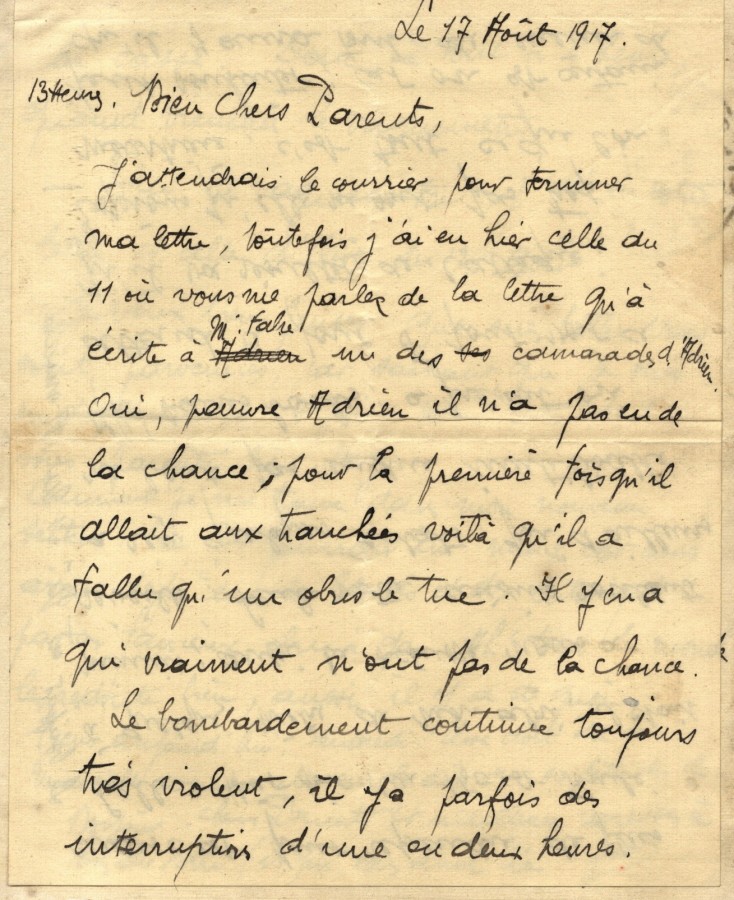 Le 17 Août 1917.
13 Heures. Bien Chers Parents,
J'attendrais le courrier pour terminer
ma lettre, toutefois j'ai eu hier celle du
11 où vous me parlez de la lettre qu'à
Mr.
écrite à Adrien un des ses camarades d'Adrien.
Oui, pauvre Adrien il n'a pas eu de
la chance ; pour la première fois qu'il
allait aux tranchées voilà qu'il a
fallu qu'un obus le tue. Il y en a
qui vraiment n'ont pas de la chance.
Le bombardement continue toujours
très violent, il y a parfois des
interruptions d'une ou deux heures.